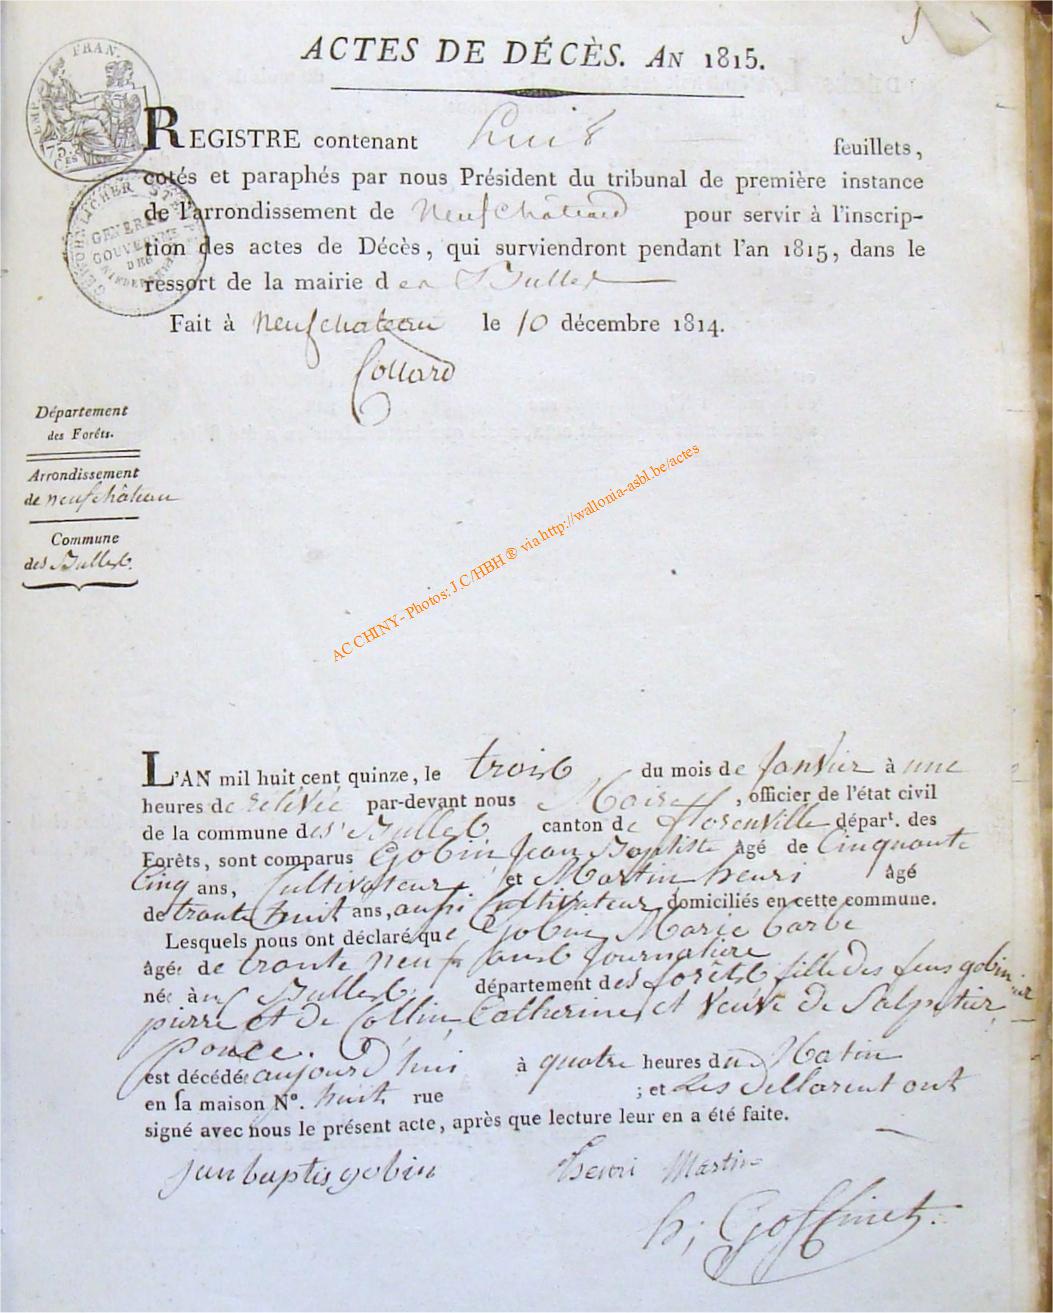 ACTES DE DÉCÈS. AN 1815.
REGISTRE contenant huit feuillets,
cotés et paraphés par nous Président du tribunal de première instance
de l'arrondissement de neufchâteau pour servir à l'inscrip-
tion des actes de Décès, qui surviendront pendant l'an 1815, dans le
ressort de la mairie des Bulles
Fait à neufchateau le 10 décembre 1814.
Collard
Département
des Forêts.
Arrondissement
de neufchâteau
Commune
des Bulles.
AC CHINY - Photos: J.C/HBH ® via http://wallonia-asbl.be/actes
L'AN mil huit cent quinze, le trois du mois de Janvier à une
heures de relevée par-devant nous Maire, officier de l'état civil
de la commune des Bulles canton de florenville départ. des
Forêts, sont comparus Gobin Jean Baptiste âgé de Cinquante
Cinq ans, Cultivateur. et Martin henri âgé
de trante huit ans, aussi Cultivateur domiciliés en cette commune.
Lesquels nous ont déclaré que Gobin Marie barbe
âgée de trante neuf ans Journaliere
née à Bulles. département des forêts fille des feus gobin
pierre et de Collin Catherine et veuve de Salpetier
ponce.
est décédée aujourd'hui à quatre heures du Matin
en sa maison N°. huit rue ; et Les Déclarent ont
signé avec nous le présent acte, après que lecture leur en a été faite.
jan baptis gobin henri Martin
h; Goffinet.